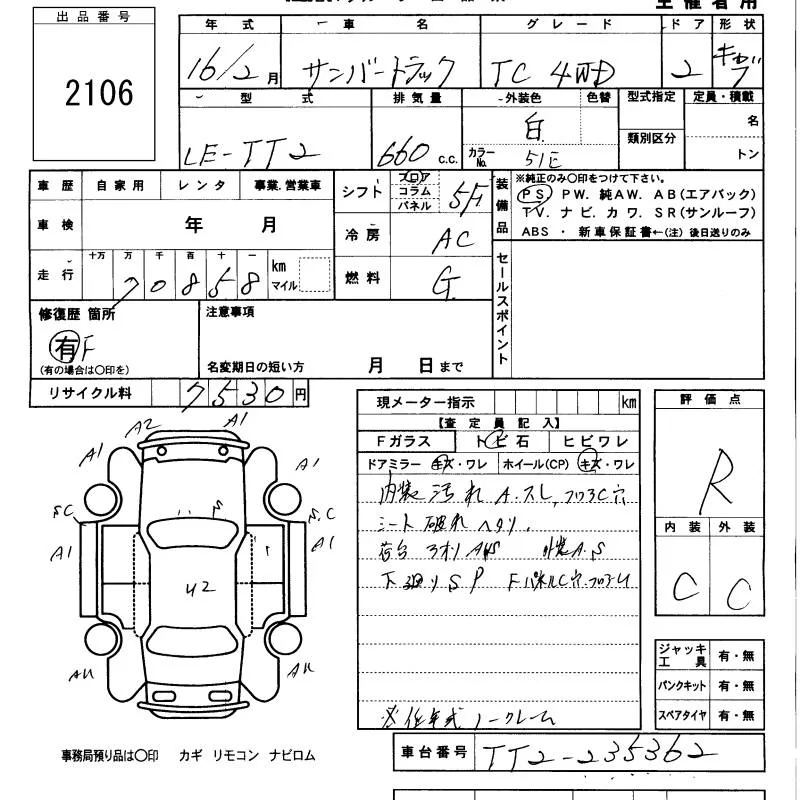 出品番号
2106
年式 車名 グレード ドア 形状
16/2月 サンバートラック TC 4WD 2 キャブ
型式 排気量 外装色 色替 型式指定 定員・積載
LE-TT2 660 c.c. 白 類別区分 名
カラーNo. 51E トン
車歴 自家用 レンタ 事業.営業車
車検 年 月
走行 十万 万 千 百 十 一 km マイル
70858
シフト フロア コラム パネル 5F
冷房 AC
燃料 G
装備品
※純正のみ〇印をつけて下さい。
PS PW. 純AW. AB(エアバック)
TV. ナビ. カワ. SR(サンルーフ)
ABS ・ 新車保証書←(注) 後日送りのみ
セールスポイント
修復歴 箇所
有 F
(有の場合は〇印を)
注意事項
名変期日の短い方 月 日まで
リサイクル料 7530 円
A2 A1
A1 A1
S.C
A1 A1
U2
現メーター指示 km
【査定員記入】
Fガラス トビ石 ヒビワレ
ドアミラー キズ・ワレ ホイール(CP) キズ・ワレ
内装 汚れ A.スレ
シート 破れ ヘタリ.
荷台 外装A.S
下廻りSP
※低年式 ノークレーム
車台番号 TT2-235362
評価点
R
内装 外装
C C
ジャッキ工具 有・無
パンクキット 有・無
スペアタイヤ 有・無
事務局預り品は〇印 カギ リモコン ナビロム